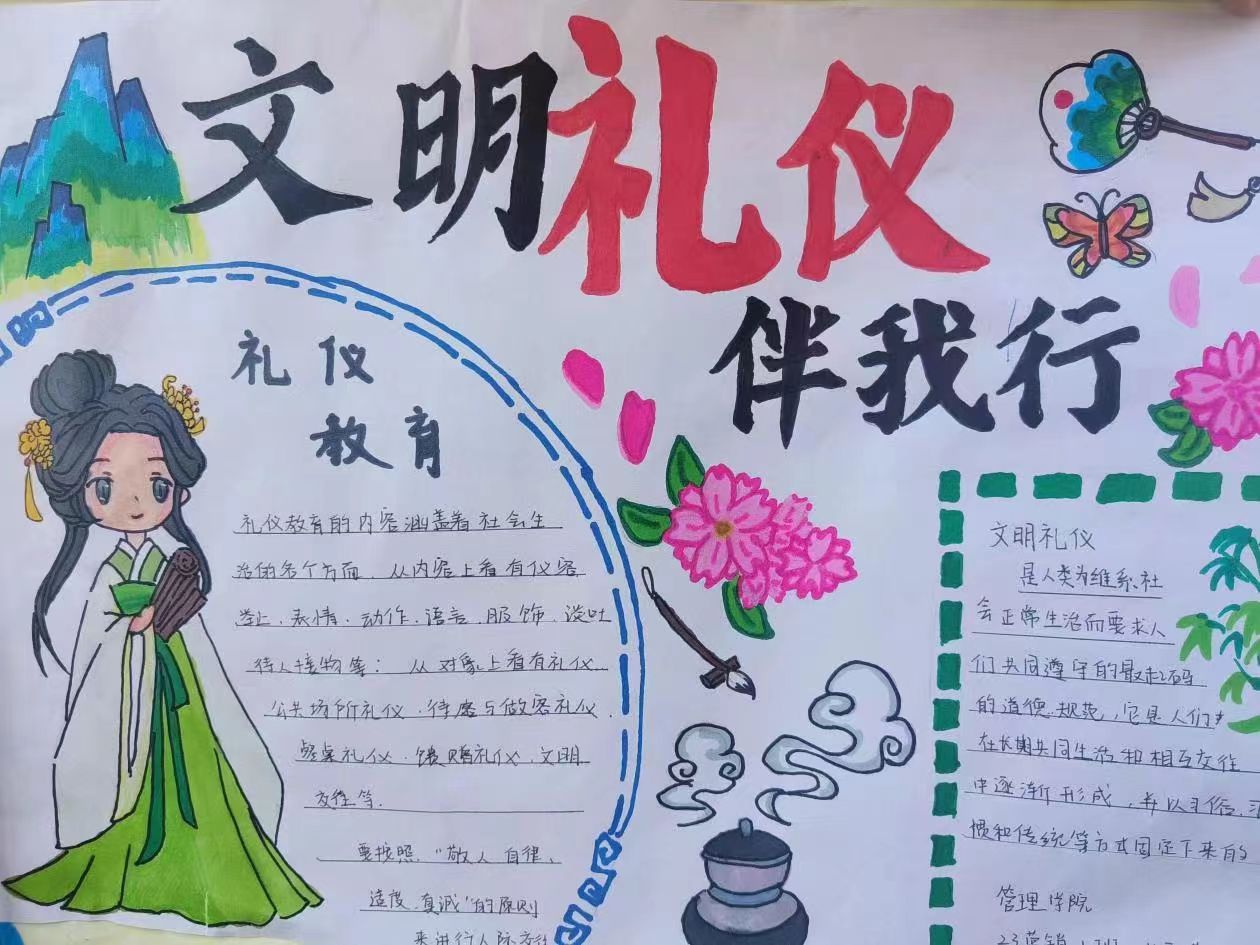 文明礼仪
伴我行
礼仪
教育
礼仪教育的内容涵盖着社会生
活的各个方面．从内容上看有仪容
举止．表情．动作．语言．服饰．谈吐
待人接物等；从对象上看有礼仪
公共场所礼仪．待客与做客礼仪．
餐桌礼仪．馈赠礼仪．文明
交往等．
要按照．“敬人 自律、
适度．真诚”的原则
来进行人际交往
文明礼仪
是人类为维系社
会正常生活而要求人
们共同遵守的最起码
的道德．规范，它是人们
在长期共同生活和相互交往
中逐渐形成，并以习俗.习
惯和传统等方式固定下来的
管理学院
23营销